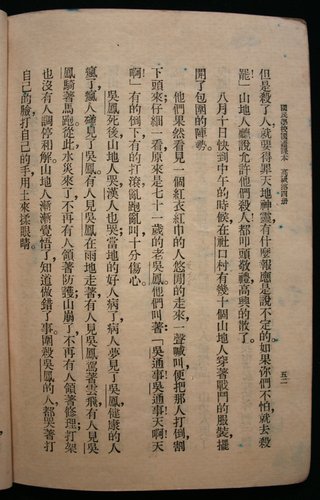 國民學校國語課本 高級第四册 五二
但是殺了人就要得罪天地神靈有什麼報應是說不定的如果你們不怕就去殺
罷」山地人聽說允許他們殺人都叩頭敬禮高興的散了。
八月十日快到中午的時候在社口村有幾十個山地人穿著戰鬥的服裝擺
開了包圍的陣勢。
他們果然看見一個紅衣紅巾的人悠閒的走來一聲喊叫便把那人打倒割
下頭來仔細一看原來是七十一歲的老吳鳳他們叫著「吳通事吳通事天啊天
啊」有的倒下有的打滾亂跑亂叫十分傷心。
吳鳳死後山地人哭漢人也哭當地的好人病了病人夢見了吳鳳健康的人
瘋了瘋人碰見了吳鳳有人見吳鳳在雨地走著有人見吳鳳駕著雲飛有人見吳
鳳騎著馬跑。從此水災來了不再有人領著防護山崩了不再有人領著修理打架
也沒有人調停和解。山地人漸漸覺悟了知道做錯了事圍殺吳鳳的人都哭著打
自己的臉打自己的手用土來揉眼睛。